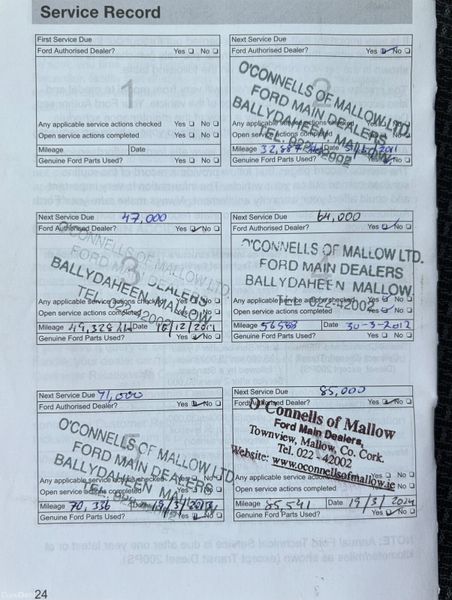 Service Record
First Service Due
Ford Authorised Dealer? Yes No
1
Any applicable service actions checked Yes No
Open service actions completed Yes No
Mileage Date
Genuine Ford Parts Used? Yes No
Next Service Due
Ford Authorised Dealer? Yes No
2
O'CONNELLS OF MALLOW LTD.
FORD MAIN DEALERS
BALLYDAHEEN MALLOW
TEL. 022-42002
Any applicable service actions checked
Open service actions completed
Mileage Date
Genuine Ford Parts Used? Yes No
Next Service Due 47,000
Ford Authorised Dealer? Yes No
3
O'CONNELLS OF MALLOW LTD.
FORD MAIN DEALERS
BALLYDAHEEN MALLOW
TEL. 022-42002
Any applicable service actions checked Yes No
Open service actions completed Yes No
Mileage 49,328 Date
Genuine Ford Parts Used? Yes No
Next Service Due 64,000
Ford Authorised Dealer? Yes No
O'CONNELLS OF MALLOW LTD.
FORD MAIN DEALERS
BALLYDAHEEN MALLOW.
TEL. 022-42002
Any applicable service actions checked Yes No
Open service actions completed Yes No
Mileage Date 30-3-2012
Genuine Ford Parts Used? Yes No
Next Service Due 71,000
Ford Authorised Dealer? Yes No
O'CONNELLS OF MALLOW LTD
FORD MAIN DEALERS
BALLYDAHEEN MALLOW
TEL.
Any applicable service actions checked Yes No
Open service actions completed Yes No
Mileage 70,336 Date
Genuine Ford Parts Used? Yes No
Next Service Due 85,000
Ford Authorised Dealer? Yes No
O'Connells of Mallow
Ford Main Dealers,
Townview, Mallow, Co. Cork.
Tel. 022 - 42002
Website: www.oconnellsofmallow.ie
Any applicable service actions Yes No
Open service actions completed Yes No
Mileage 85,541 Date 19/3/2014
Genuine Ford Parts Used? Yes No
24